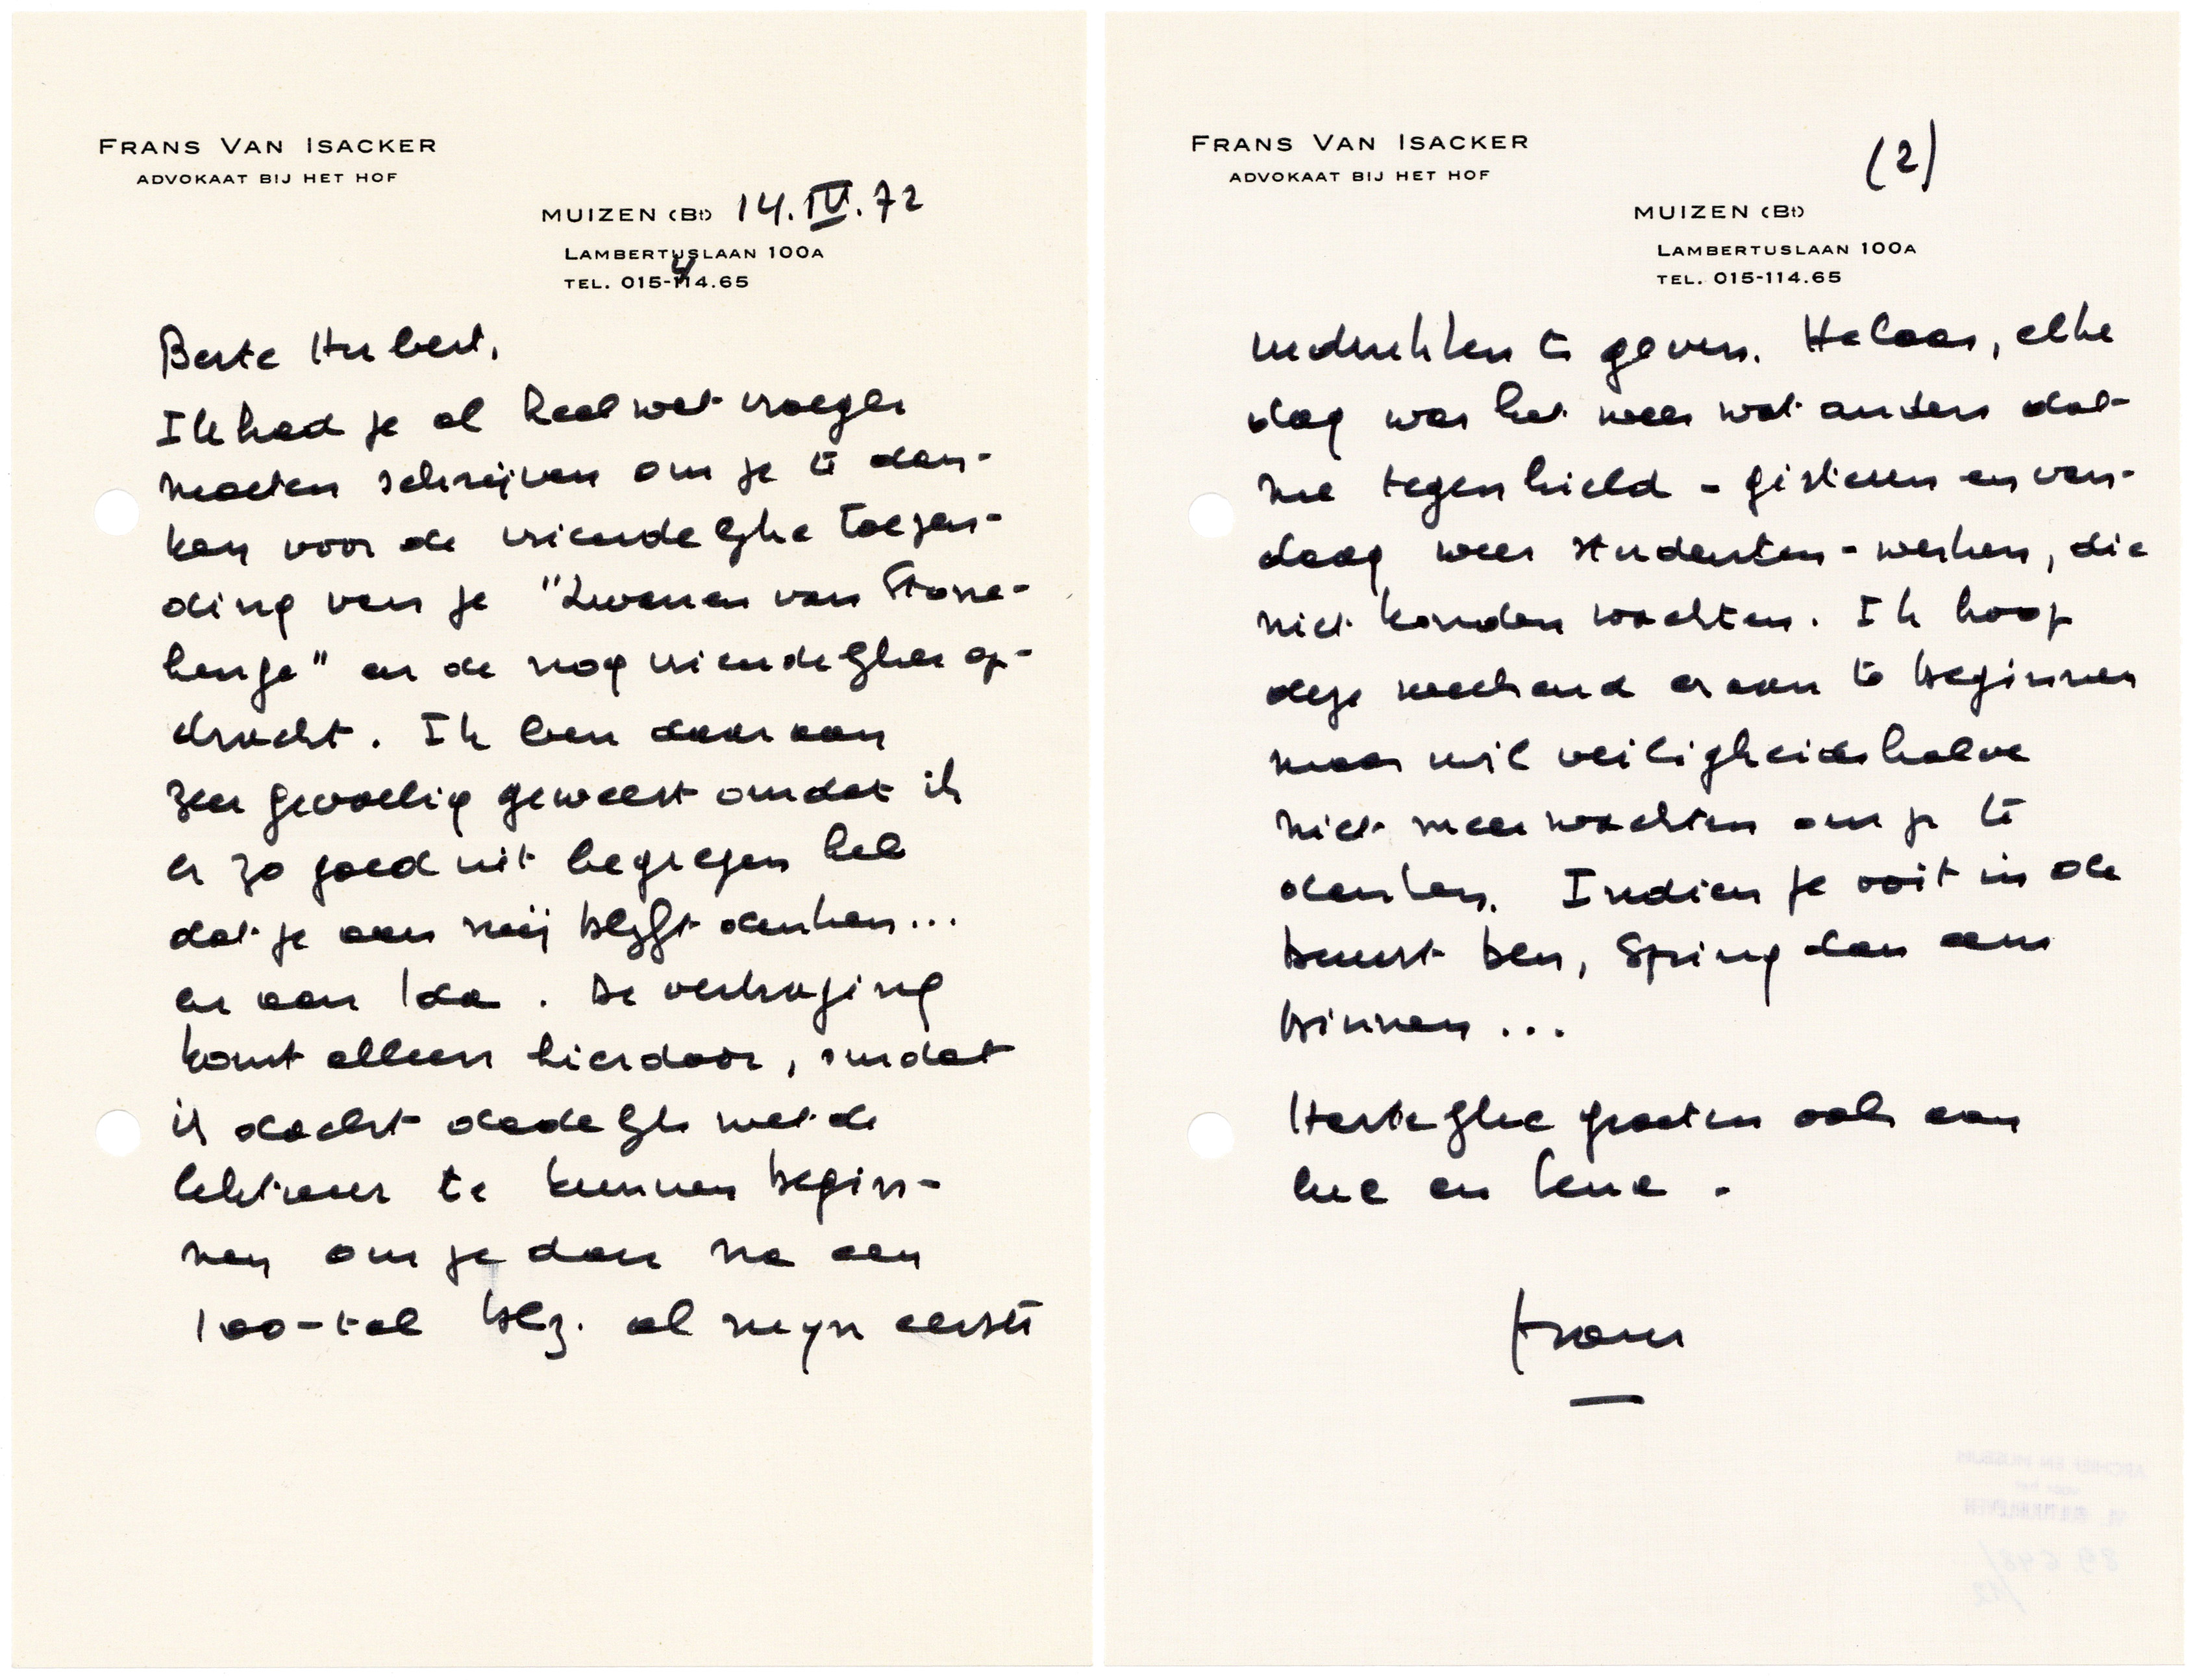 FRANS VAN ISACKER
ADVOKAAT BIJ HET HOF
MUIZEN (Bt) 14.IV.72
LAMBERTUSLAAN 100A
4
TEL. 015-114.65
Beste Hubert,
Ik had je al heel wat vroeger
moeten schrijven om je te dan-
ken voor de vriendelijke toezen-
ding van je "Zwanen van Stone-
henge" en de nog vriendelijker op-
dracht. Ik ben daaraan
zeer gevoelig geweest omdat ik
er zo goed uit begrepen heb
dat je aan mij blijft denken...
en aan Ida. De vertraging
komt alleen hierdoor, omdat
ik dacht dadelijk met de
lektuur te kunnen begin-
nen om je dan na een
100-tal blz. al mijn eerste
(2)
FRANS VAN ISACKER
ADVOKAAT BIJ HET HOF
MUIZEN (Bt)
LAMBERTUSLAAN 100A
TEL. 015-114.65
indrukken te geven. Helaas, elke
dag was het weer wat anders dat
me tegenhield - gisteren en van-
daag weer studenten-werken, die
niet konden wachten. Ik hoop
deze weekend eraan te beginnen
maar wil veiligheidshalve
niet meer wachten om je te
danken. Indien je ooit in de
buurt ben, spring dan eens
binnen...
Hartelijke groeten ook aan
en
Frans